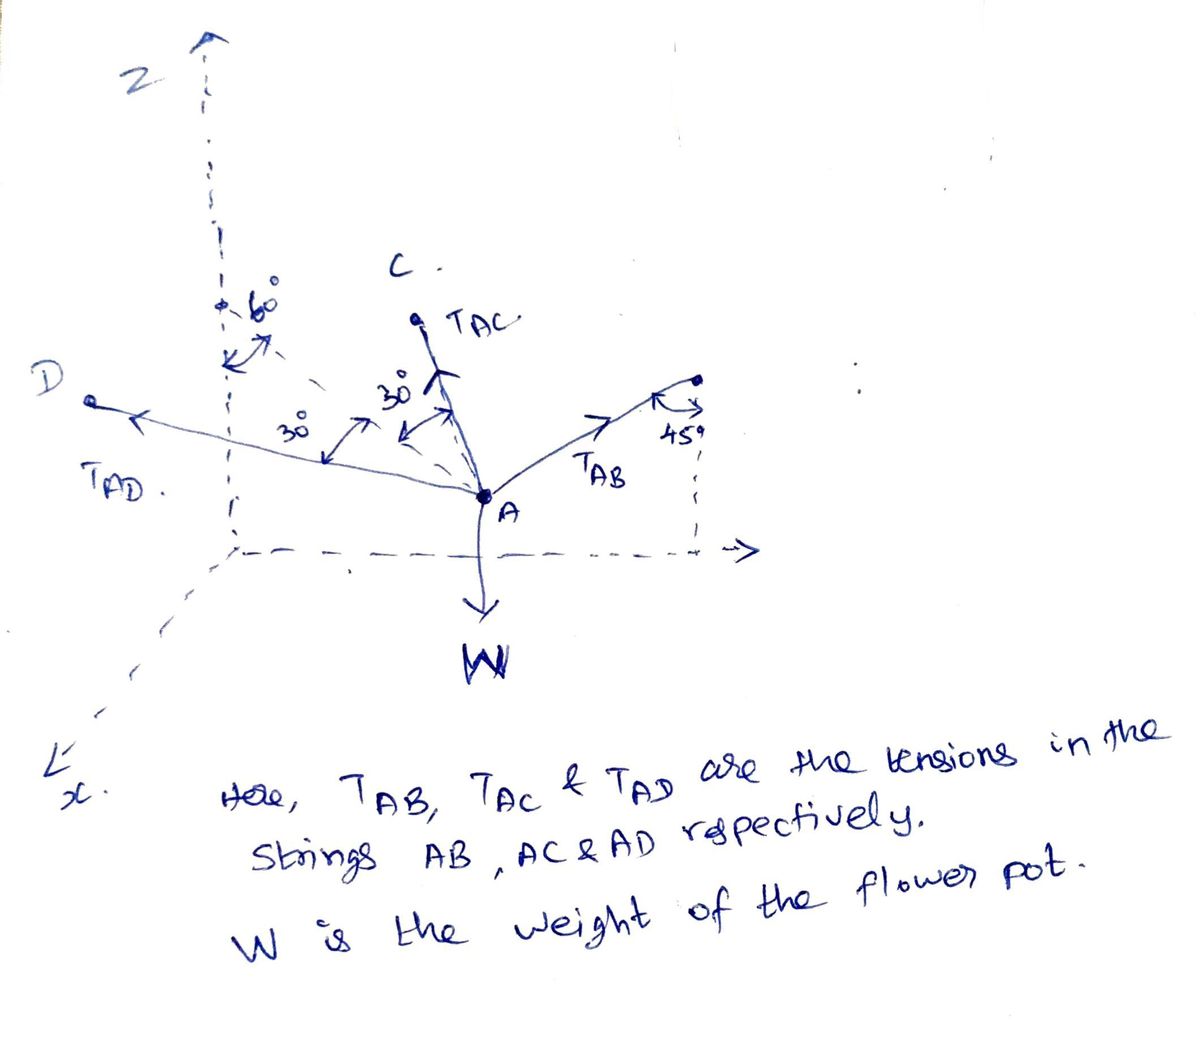 Z
60°
C.
TAC
D
30°
30°
45°
TAD.
TAB
A
W
x.
Here, TAB, TAC & TAD are the tensions in the
Strings AB, AC & AD respectively.
W is the weight of the flower pot.